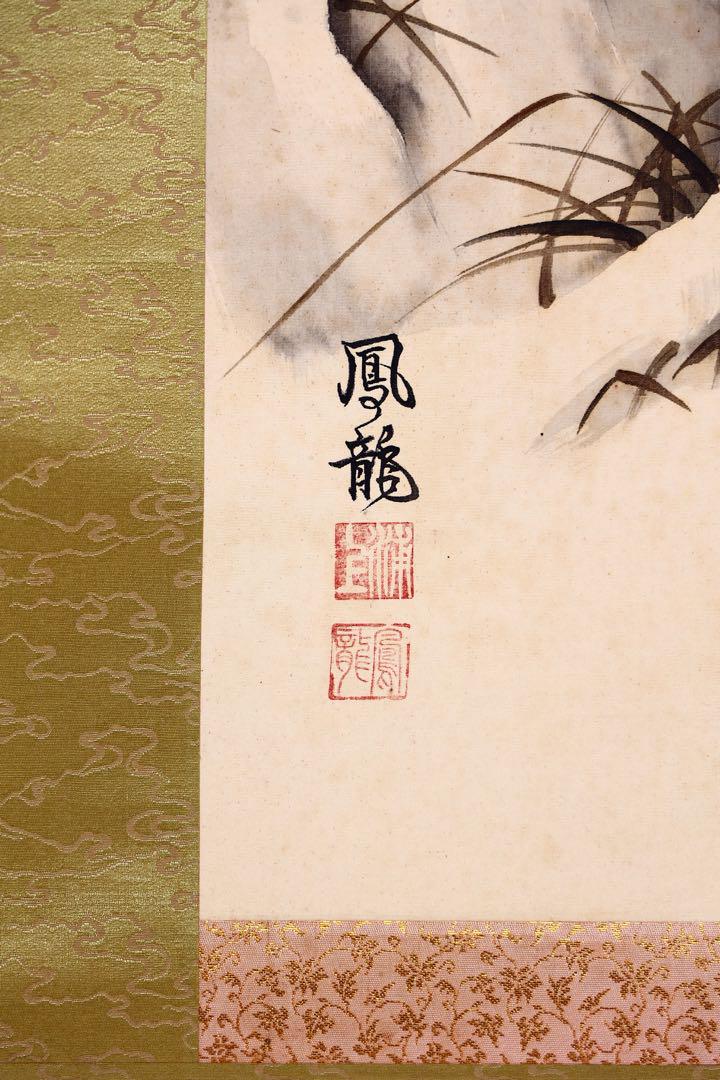 鳳
龍
鳳龍